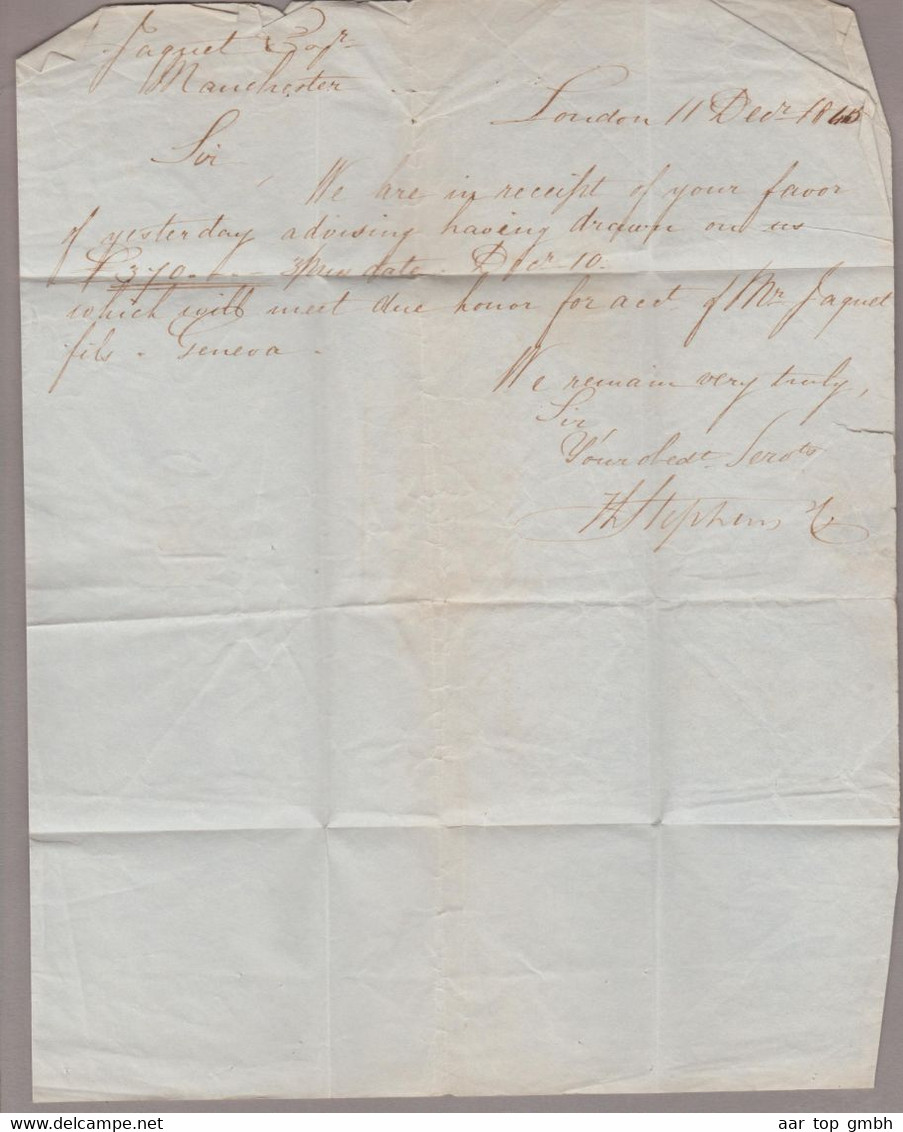 Jaquet Esqr
Manchester
London 11 Decr 184
Sir
We are in receipt of your favor
of yesterday advising having drawn on us
£370.--- 3 Mos date. Decr 10.
which will meet due honor for acct of Mr Jaquet
fils. Geneva.
We remain very truly,
Sir,
Your obedt Servts
Stephens
aar top gmbh